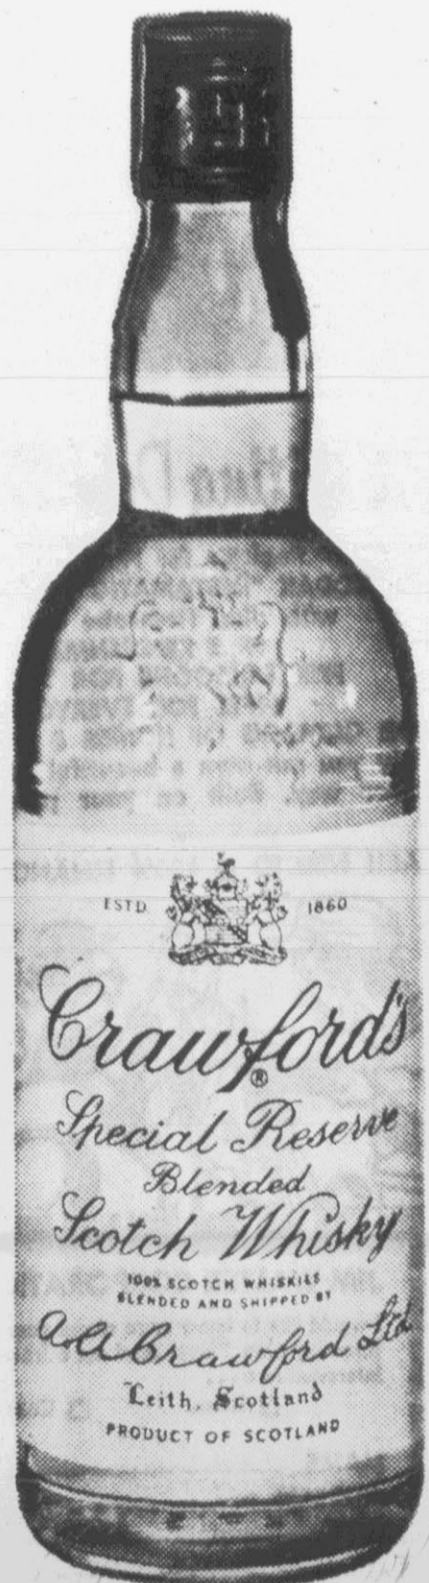 ESTD. 1860
Crawford's
®
Special Reserve
Blended
Scotch Whisky
100% SCOTCH WHISKIES
BLENDED AND SHIPPED BY
A. A. Crawford Ltd
Leith, Scotland
PRODUCT OF SCOTLAND